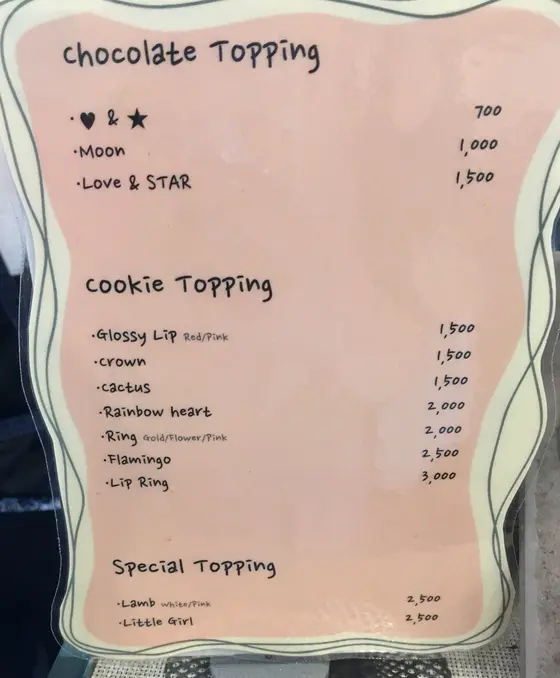 Chocolate Topping
·♥ & ★ 700
·Moon 1,000
·Love & STAR 1,500
Cookie Topping
·Glossy Lip Red/Pink 1,500
·crown 1,500
·cactus 1,500
·Rainbow heart 2,000
·Ring Gold/Flower/Pink 2,000
·Flamingo 2,500
·Lip Ring 3,000
Special Topping
·Lamb White/Pink 2,500
·Little Girl 2,500